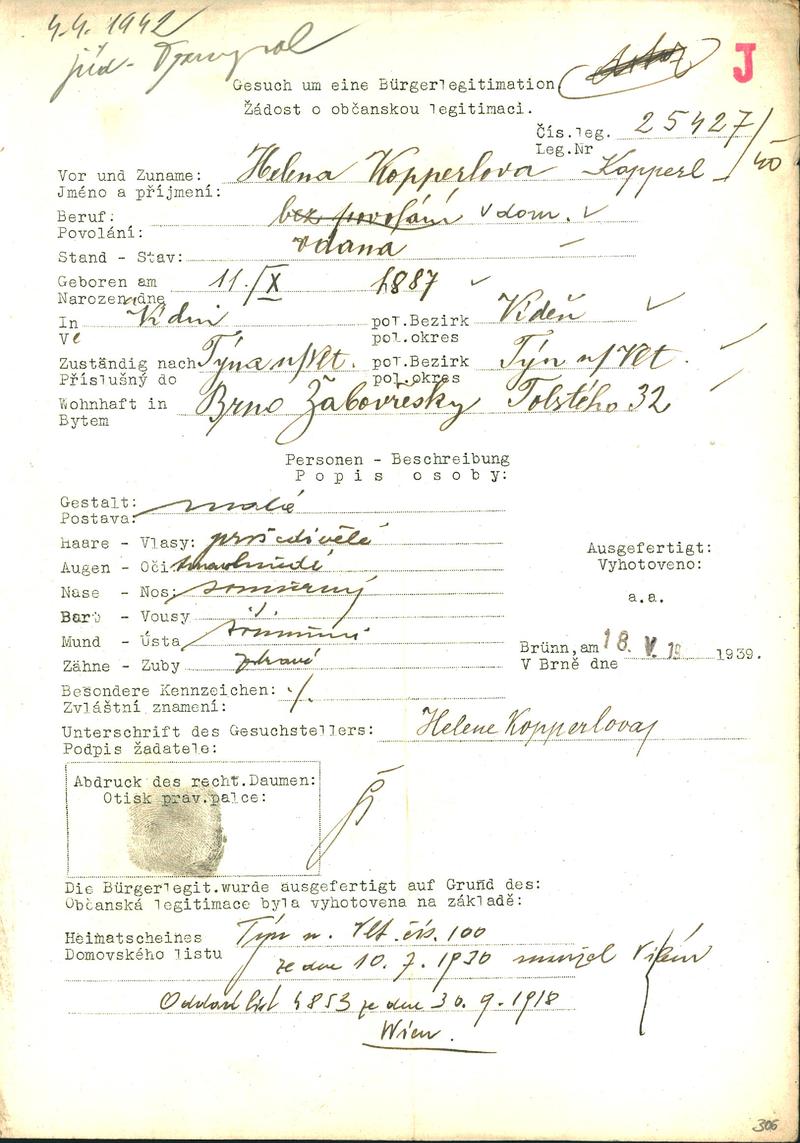 4.4. 1942
jüd. Transport
J
Gesuch um eine Bürgerlegitimation
Žádost o občanskou legitimaci.
Čís.leg. 25427/40
Leg.Nr
Vor und Zuname: Helena Kopperlova Kopperl
Jméno a příjmení:
Beruf: bez povolání v dom.
Povolání:
Stand - Stav: vdana
Geboren am 11./X 1887
Narozen dne
In Vídni pol.Bezirk Vídeň
Ve pol.okres
Zuständig nach Týna n/Vlt. pol.Bezirk Týn n/Vlt.
Příslušný do pol.okres
Wohnhaft in Brno Žabovřesky Tolstého 32
Bytem
Personen - Beschreibung
Popis osoby:
Gestalt: malá
Postava:
Haare - Vlasy: prošedivělé
Augen - Oči tmavohnědé
Nase - Nos: souměrný
Bart - Vousy ./.
Mund - Ústa souměrná
Zähne - Zuby zdravé
Ausgefertigt:
Vyhotoveno:
a.a.
Brünn,am 18. V. 19 1939.
V Brně dne
Besondere Kennzeichen: ./.
Zvláštní znamení:
Unterschrift des Gesuchstellers: Helene Kopperlova
Podpis žadatele:
Abdruck des recht.Daumen:
Otisk prav.palce:
Die Bürgerlegit.wurde ausgefertigt auf Grund des:
Občanská legitimace byla vyhotovena na základě:
Heimatscheines Týn n. Vlt. čís. 100
Domovského listu ze dne 10.7.1930 manžel Vilém
Oddací list 4853 ze dne 30.9.1918
Wien.
306